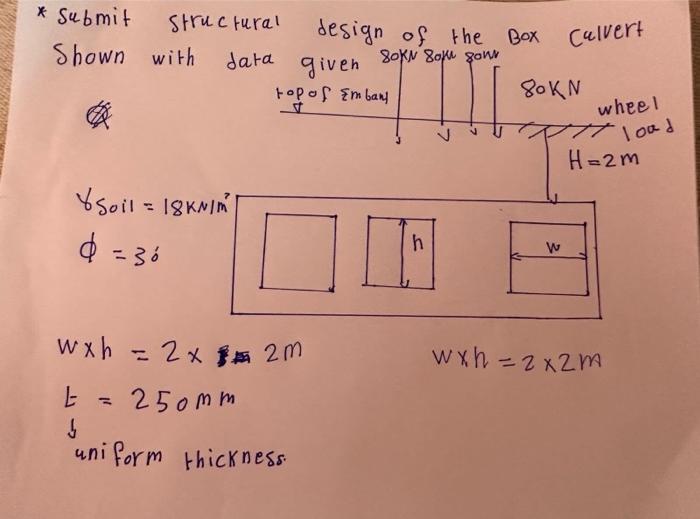 * Submit structural design of the Box Culvert
Shown with data given 80KN 80KN 80KN
top of Embank 80KN
wheel
load
H=2m
γsoil = 18KN/m³
ϕ = 30
h
w
wxh = 2x 2m
wxh = 2x2m
t = 250mm
uniform thickness.